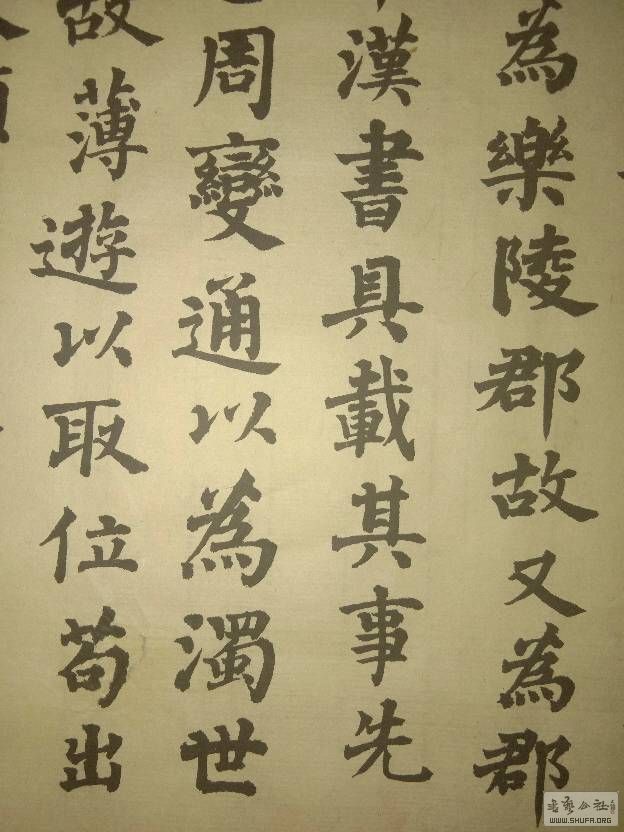 為樂陵郡故又為郡
漢書具載其事先
周變通以為濁世
故薄遊以取位苟出
WWW.SHUFA.ORG